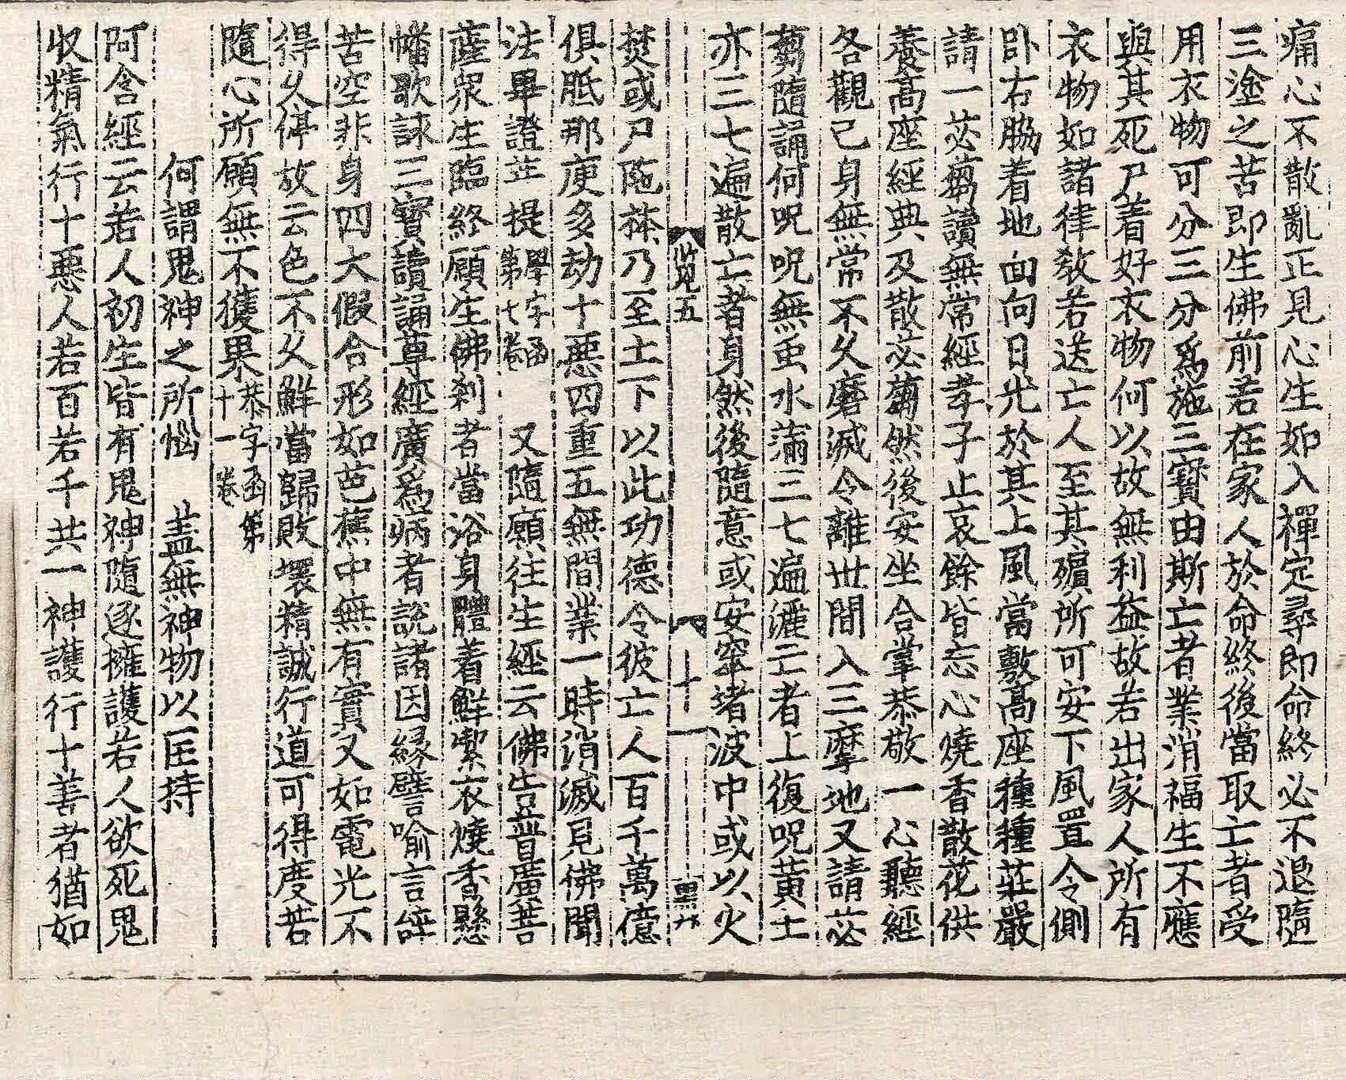 痛心不散亂正見心生如入禪定尋即命終必不退墮
三塗之苦即生佛前若在家人於命終後當取亡者受
用衣物可分三分爲施三寶由斯亡者業消福生不應
與其死尸着好衣物何以故無利益故若出家人所有
衣物如諸律教若送亡人至其殯所可安下風置令側
卧右脇着地面向日光於其上風當敷高座種種莊嚴
請一苾蒭讀無常經孝子止哀餘皆忘心燒香散花供
養高座經典及散苾蒭然後安坐合掌恭敬一心聽經
各觀己身無常不久磨滅令離世間入三摩地又請苾
蒭隨誦何呪呪無虫水滿三七遍灑亡者上復呪黃土
亦三七遍散亡者身然後隨意或安窣堵波中或以火
五
十一
焚或尸陁林乃至土下以此功德令彼亡人百千萬億
俱胝那庾多劫十惡四重五無間業一時消滅見佛聞
法畢證菩提學字函第七卷 又隨願往生經云佛告普廣菩
薩衆生臨終願生佛刹者當浴身體着鮮潔衣燒香懸
幡歌詠三寶讀誦尊經廣爲病者說諸因緣譬喻言辝
苦空非身四大假合形如芭蕉中無有實又如電光不
得久停故云色不久鮮當歸敗壞精誠行道可得度苦
隨心所願無不獲果恭字函第十一卷
何謂鬼神之所惱 盖無神物以匡持
阿含經云若人初生皆有鬼神隨逐擁護若人欲死鬼
収精氣行十惡人若百若千共一神護行十善者猶如